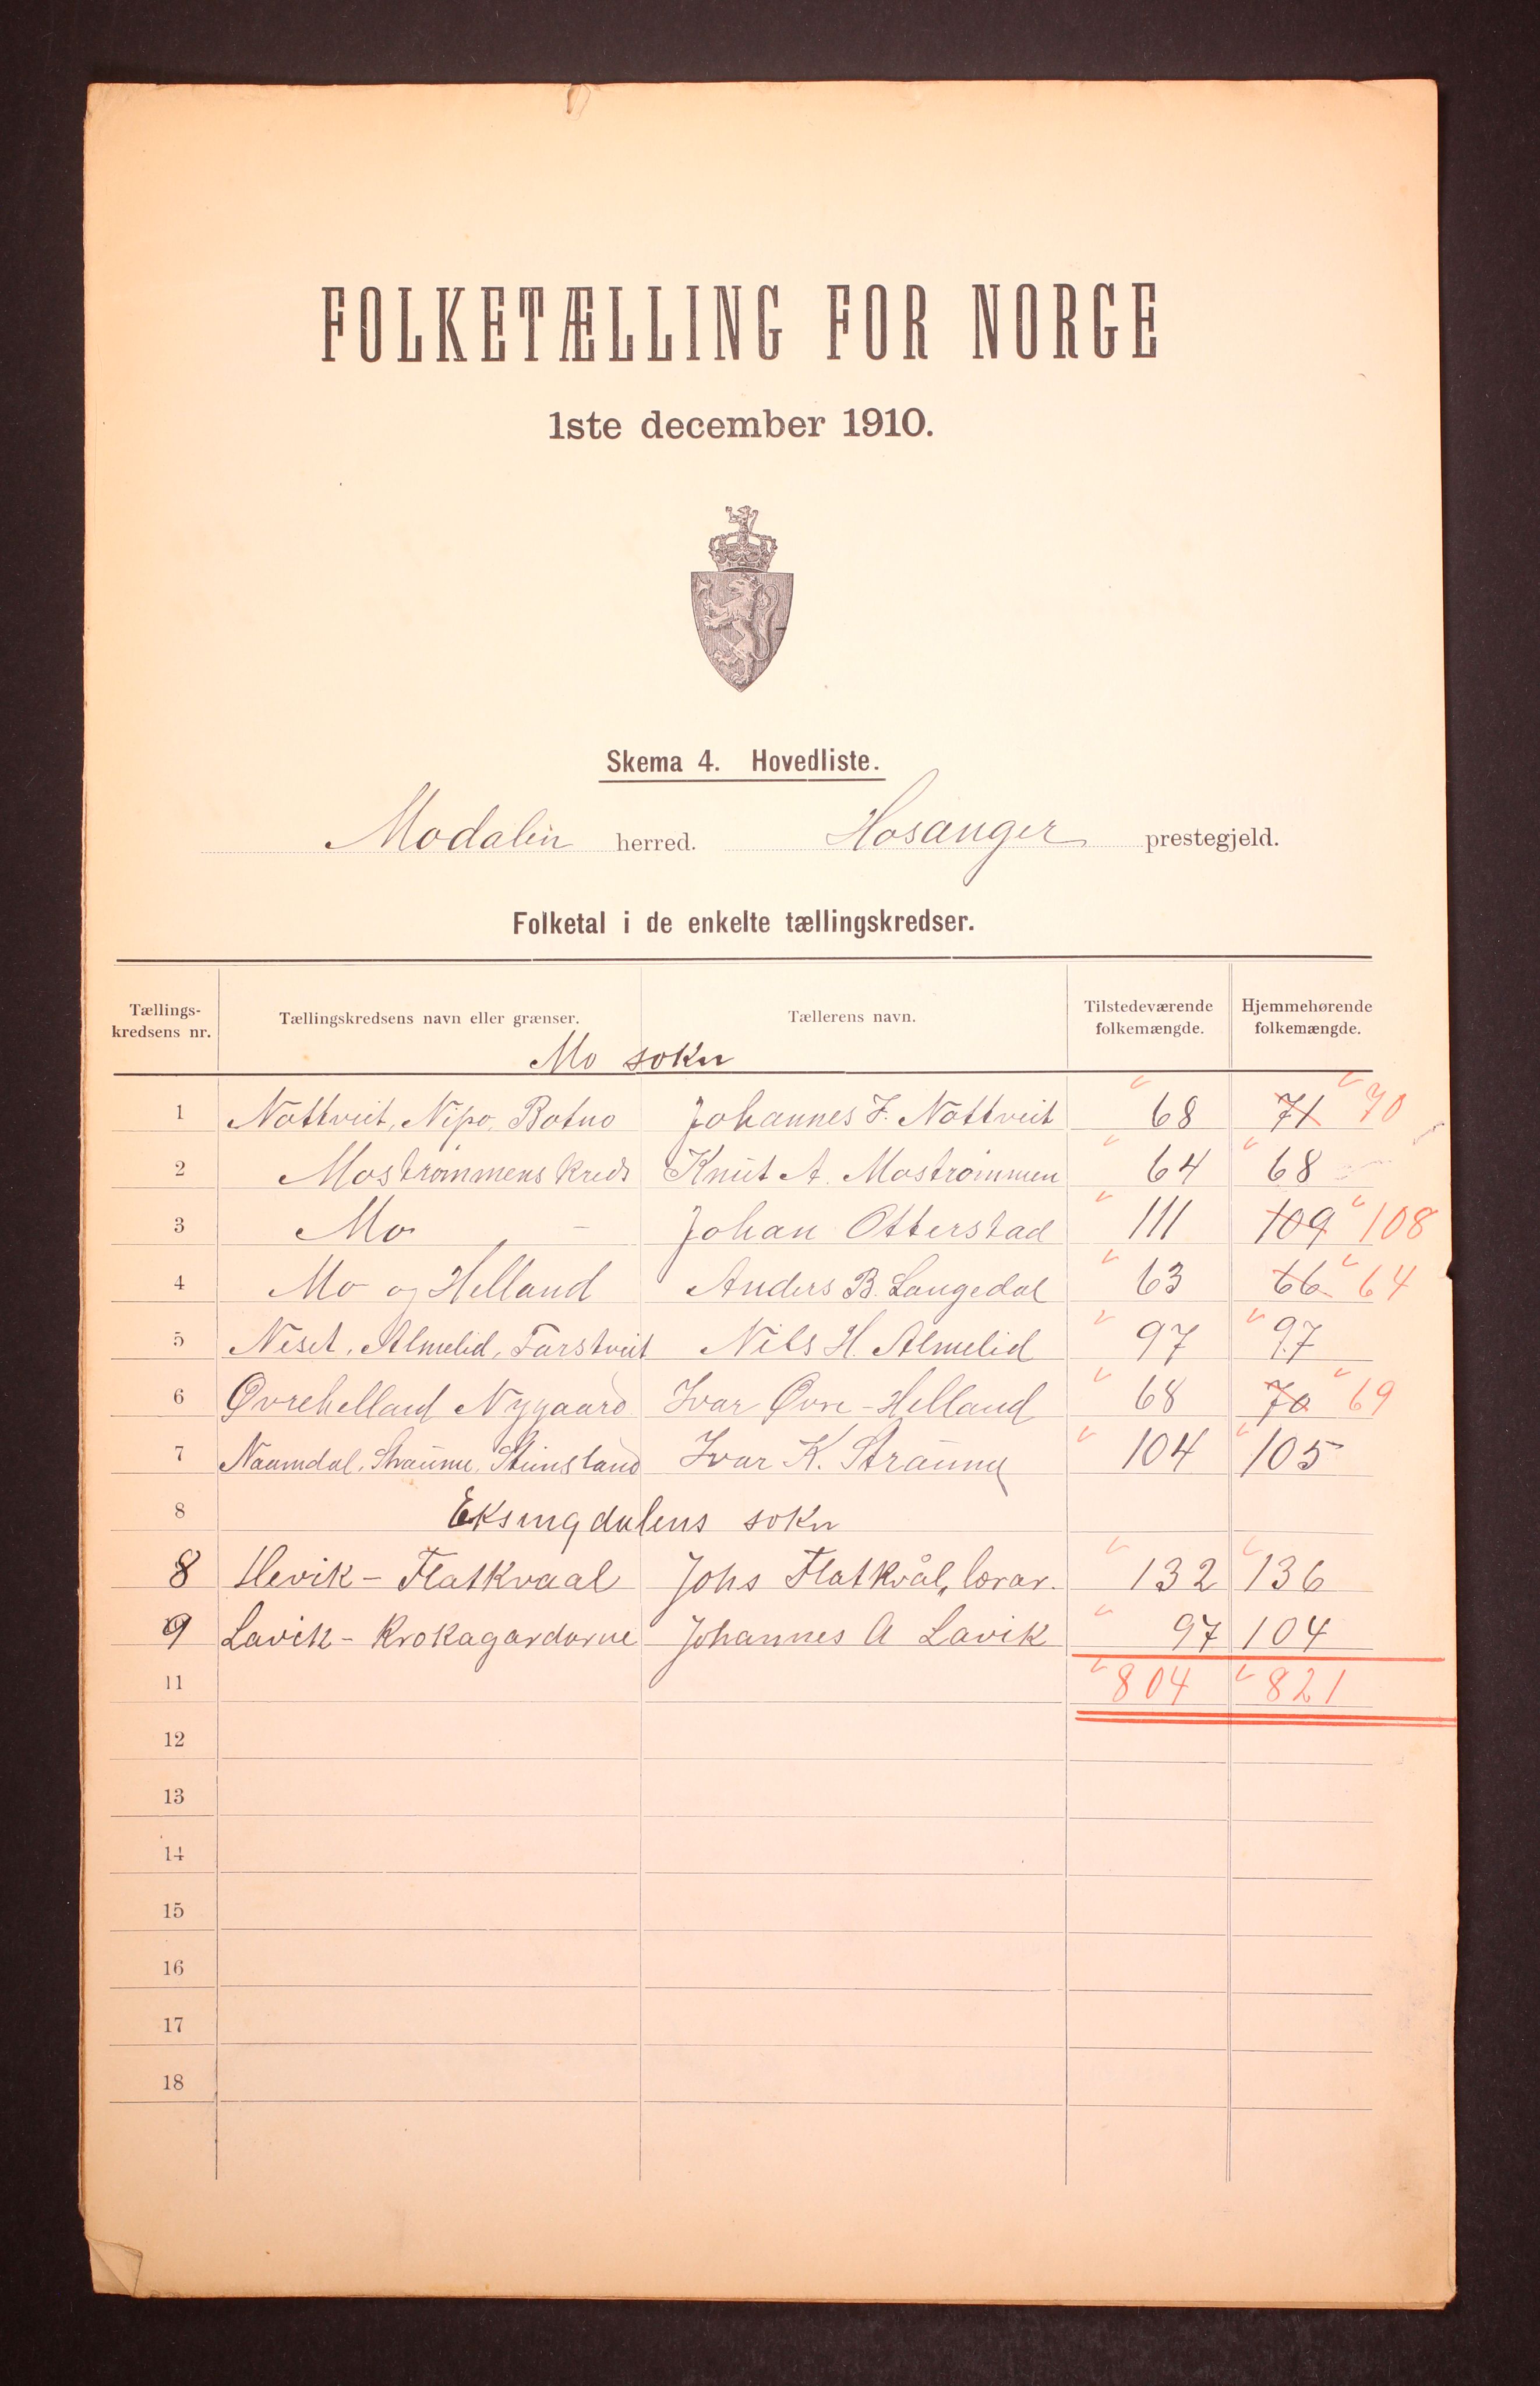 FOLKETÆLLING FOR NORGE
1ste december 1910.
Skema 4. Hovedliste.
Modalen herred. Hosanger prestegjeld.
Folketal i de enkelte tællingskredser.
Tællings-kredsens nr. Tællingskredsens navn eller grænser. Tællerens navn. Tilstedeværende folkemængde. Hjemmehørende folkemængde.
Mo sokn
1 Nottveit, Nipo, Botno Johannes J. Nottveit 68 71 70
2 Mostrømmens kreds Knut A. Mostrømmen 64 68
3 Mo - Johan Otterstad 111 109 108
4 Mo og Helland Anders B. Langedal 63 66 64
5 Neset, Almelid, Farstveit Nils H. Almelid 97 97
6 Øvrehelland Nygaard Ivar Øvre-Helland 68 70 69
7 Naamdal, Straume, Steinsland Ivar K. Straume 104 105
8 Eksingdalens sokn
8 Hevik - Flatkvaal Johs Flatkvål, lærar. 132 136
9 Lavik - Krokagardarne Johannes A Lavik 97 104
11 804 821
12
13
14
15
16
17
18